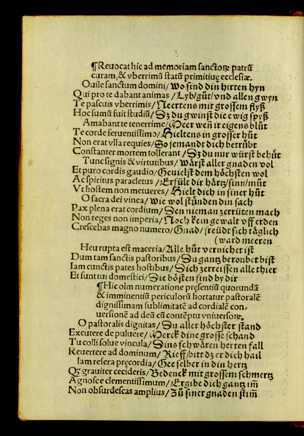 ¶Reuocat hic ad memoriam sanctorꝫ patrū
curam, & vberrimū statū primitiuę ecclesiæ.
O uile sanctum domini / wo sind din hirten hyn
Qui pro te dabant animas / Lyb / gůt / vnd allen gwyn
Te pascuis vberrimis / Neertens mit grossem flyß
Hoc sumā fuit studiū / Sʒ du gwinst die ewig spyß
Amabant te tenerrime / Meer weñ ir eigens blůt
Te corde feruentissimo / Hieltens in grosser hůt
Non erat vlla requies / So jemandt dich betrůbt
Constanter mortem tollerant / Sʒ du nur würst behůt
Tunc signis & virtutibus / Wärst aller gnaden vol
Et puro cordis gaudio / Geuielst dem höchsten wol
Ac spiritus paracletus / Erfült dir härtz / sinn / můt
Vt hostem non metueres / Hielt dich in siner hůt
O sacra dei vinea / wie wol stůnden din sach
Pax plena erat cordium / Den nieman zertrüten mach
Non reges non imperia / Noch kein gewalt vff erden
Crescebas magno numero / Gnad / freüd sich täglich
(ward meeren
Heu rupta est maceria / Alle hůt vernichet ist
Dum tam sanctis pastoribus / Du gantz beroubet bist
Iam cunctis patet hostibus / Sich zerreisßen alle thier
Et sunt tum domestici / Die bösten sind by dir
¶Hic olm numeratione presentiū quorundā
& imminentiū periculorū hortatur pastoralē
dignissimam sublimitatē ad cordialē con-
uersionē ad deū cū contēptu vniuersorꝫ.
O pastoralis dignitas / Du aller höchster stand
Excutere de puluere / Merck dine grosse schand
Tu colli solue vincula / Dins schwären herten fall
Reuertere ad dominum / Rieff / bitt dʒ er dich hail
Iam resera precordia / Gee selber in din hertz
Qʒ grauiter cecideris / Bedenck mit grossem schmertz
Agnosce clementissimum / Ergibe dich gantz im
Non obsurdescas amplius / Zů siner gnaden stim